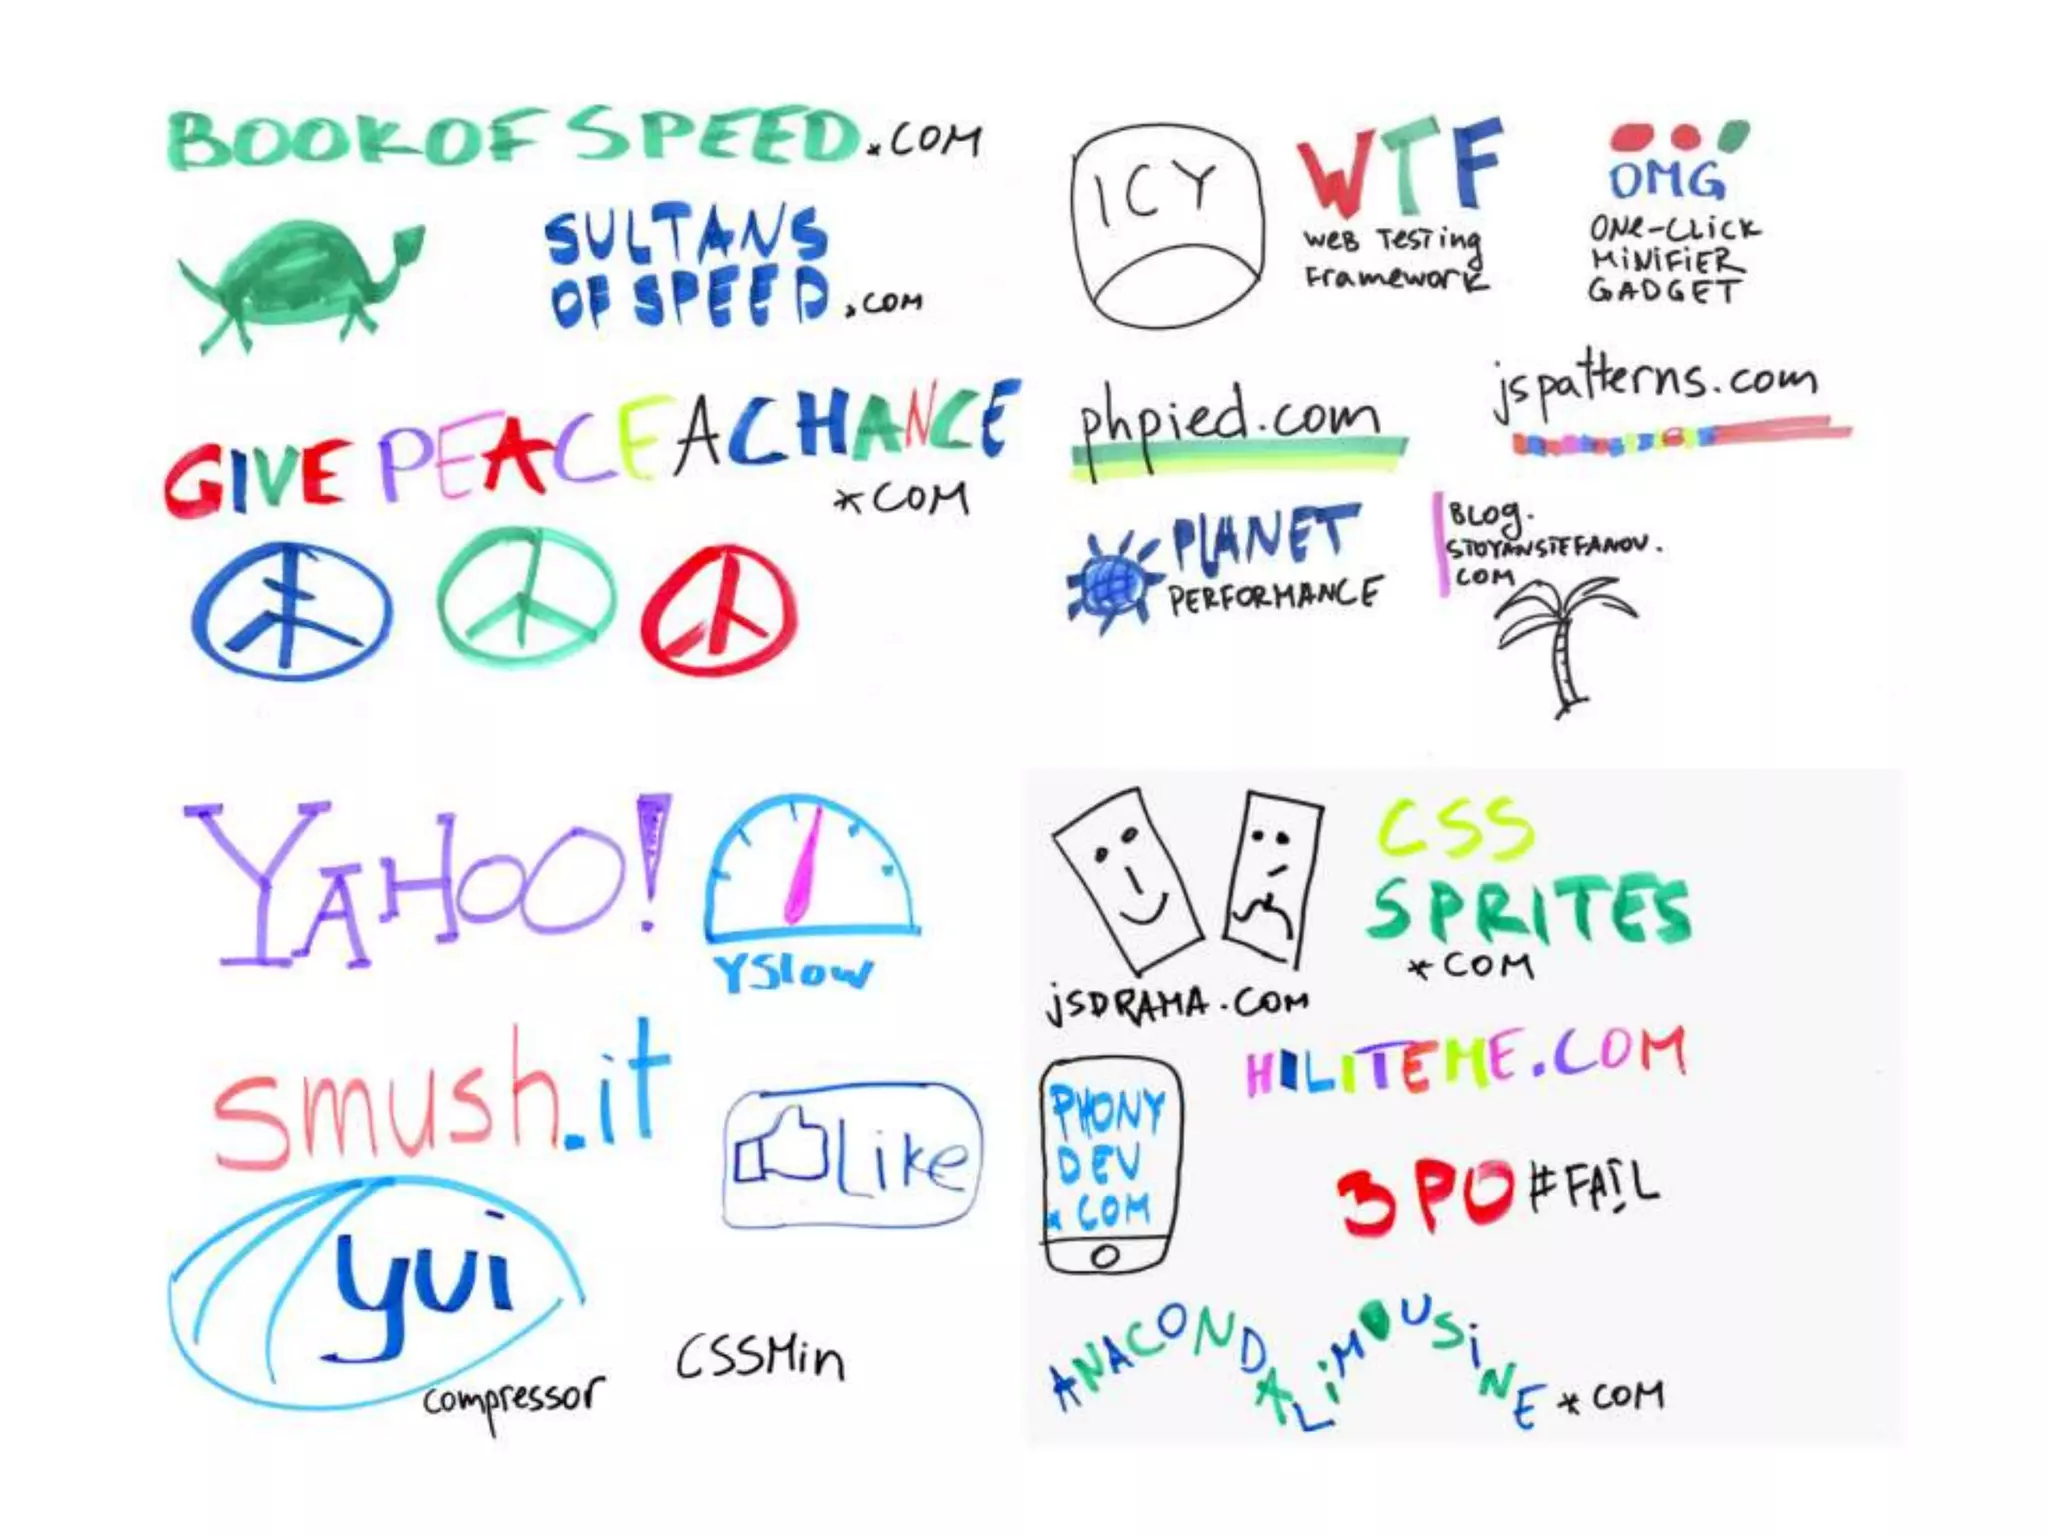 BOOKOFSPEED.COM
SULTANS
OF SPEED.COM
GIVE PEACE A CHANCE
*COM
ICY
WTF
WEB TESTING
FRAMEWORK
OMG
ONE-CLICK
MINIFIER
GADGET
phpied.com
jspatterns.com
PLANET
PERFORMANCE
BLOG.
STOYANSTEFANOV.
COM
YAHOO!
YSlow
smush.it
Like
yui
compressor
CSSMin
jSDRAMA.COM
CSS
SPRITES
*COM
HILITEME.COM
PHONY
DEV
*COM
3PO #FAIL
ANACONDALIMOUSINE*COM